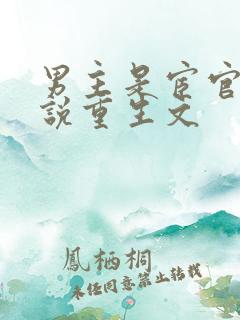 男主是宦官
說重生文
鳳栖桐
未经同意禁止转载